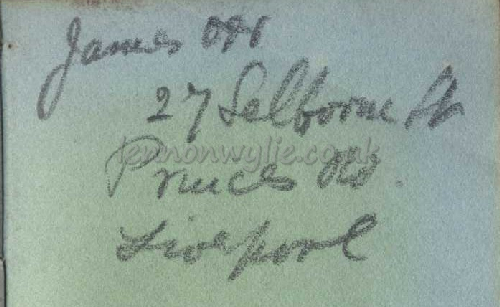 James Orr
27 Selborne St
lennonwylie.co.uk
Princes Rd.
Liverpool